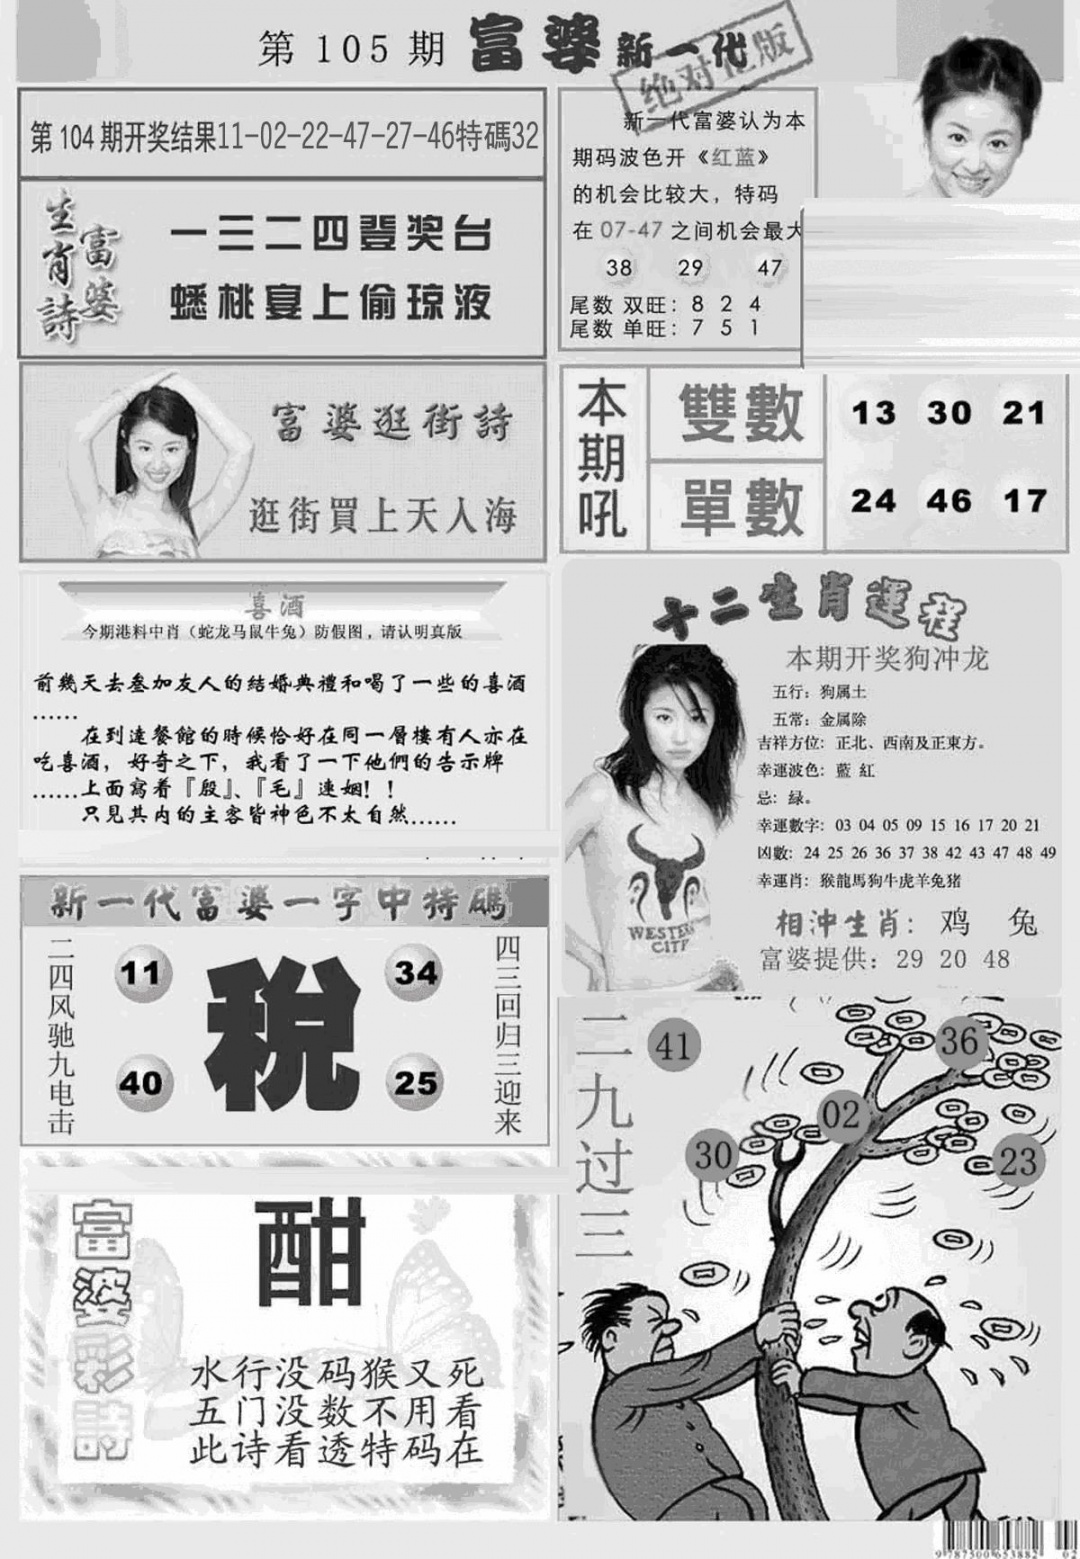 第 105 期 富婆 新一代
绝对正版
第 104 期开奖结果11-02-22-47-27-46特碼32
富婆生肖詩
一三二四登奖台
蟋桃宴上偷琼液
新一代富婆认为本
期码波色开《红蓝》
的机会比较大，特码
在 07-47 之间机会最大
38 29 47
尾数 双旺：8 2 4
尾数 单旺：7 5 1
富婆逛街詩
逛街買上天人海
本期吼
雙數 13 30 21
單數 24 46 17
喜酒
今期港料中肖（蛇龙马鼠牛兔）防假图，请认明真版
前幾天去叁加友人的結婚典禮和喝了一些的喜酒
……
在到達餐館的時候恰好在同一層樓有人亦在
吃喜酒，好奇之下，我看了一下他們的告示牌
……上面寫着『殷』、『毛』連姻！！
只見其内的主客皆神色不太自然……
十二生肖運程
本期开奖狗冲龙
五行：狗属土
五常：金属除
吉祥方位：正北、西南及正東方。
幸運波色：藍 紅
忌：绿。
幸運數字：03 04 05 09 15 16 17 20 21
凶數：24 25 26 36 37 38 42 43 47 48 49
幸運肖：猴龍馬狗牛虎羊兔猪
相沖生肖：鸡 兔
富婆提供：29 20 48
WESTERN
CITY
新一代富婆一字中特碼
二四风驰九电击
11 34
税
40 25
四三回归三迎来
二九过三
41 36
02
30 23
富婆彩詩
酣
水行没码猴又死
五门没数不用看
此诗看透特码在
9787500653882 02